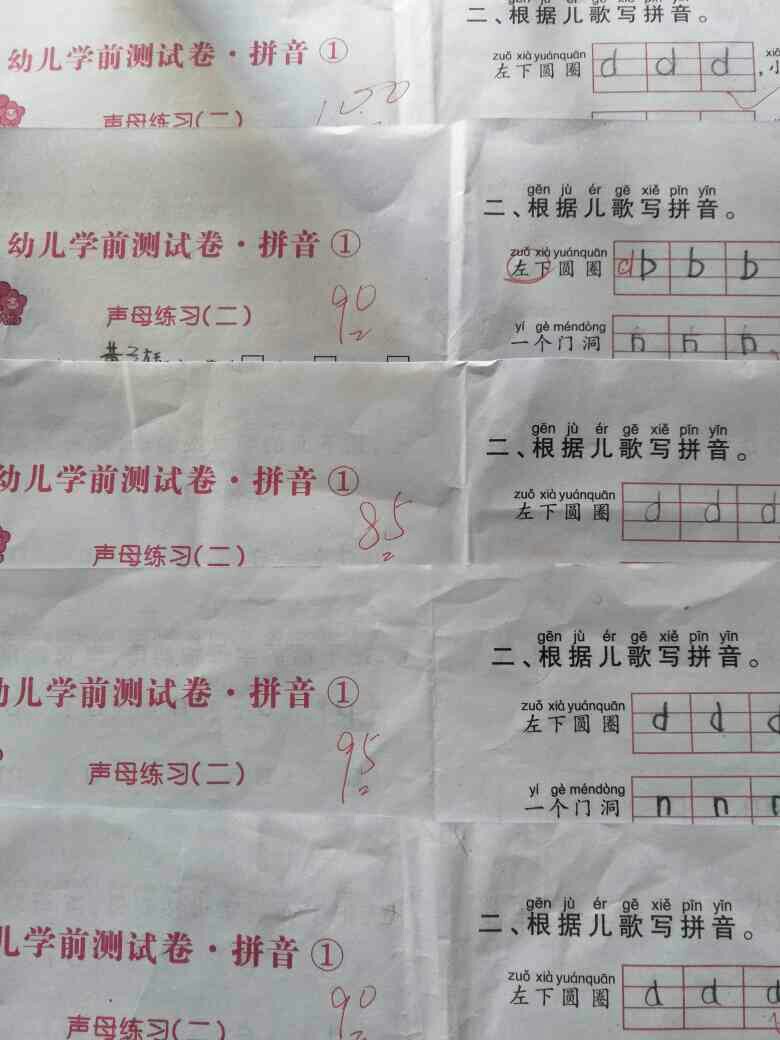 二、根据儿歌写拼音。
幼儿学前测试卷·拼音①
zuǒ xià yuánquān
左下圆圈 d d d
声母练习(二)
100
gēn jù ér gē xiě pīn yīn
二、根据儿歌写拼音。
幼儿学前测试卷·拼音①
zuǒ xià yuánquān
左下圆圈 d b b b
声母练习(二)
90
yí gè méndòng
一个门洞 n n n
gēn jù ér gē xiě pīn yīn
二、根据儿歌写拼音。
幼儿学前测试卷·拼音①
zuǒ xià yuánquān
左下圆圈 d d d
声母练习(二)
85
gēn jù ér gē xiě pīn yīn
二、根据儿歌写拼音。
幼儿学前测试卷·拼音①
zuǒ xià yuánquān
左下圆圈 d d d
声母练习(二)
95
yí gè méndòng
一个门洞 n n n
gēn jù ér gē xiě pīn yīn
二、根据儿歌写拼音。
儿学前测试卷·拼音①
zuǒ xià yuánquān
左下圆圈 d d d
声母练习(二)
90